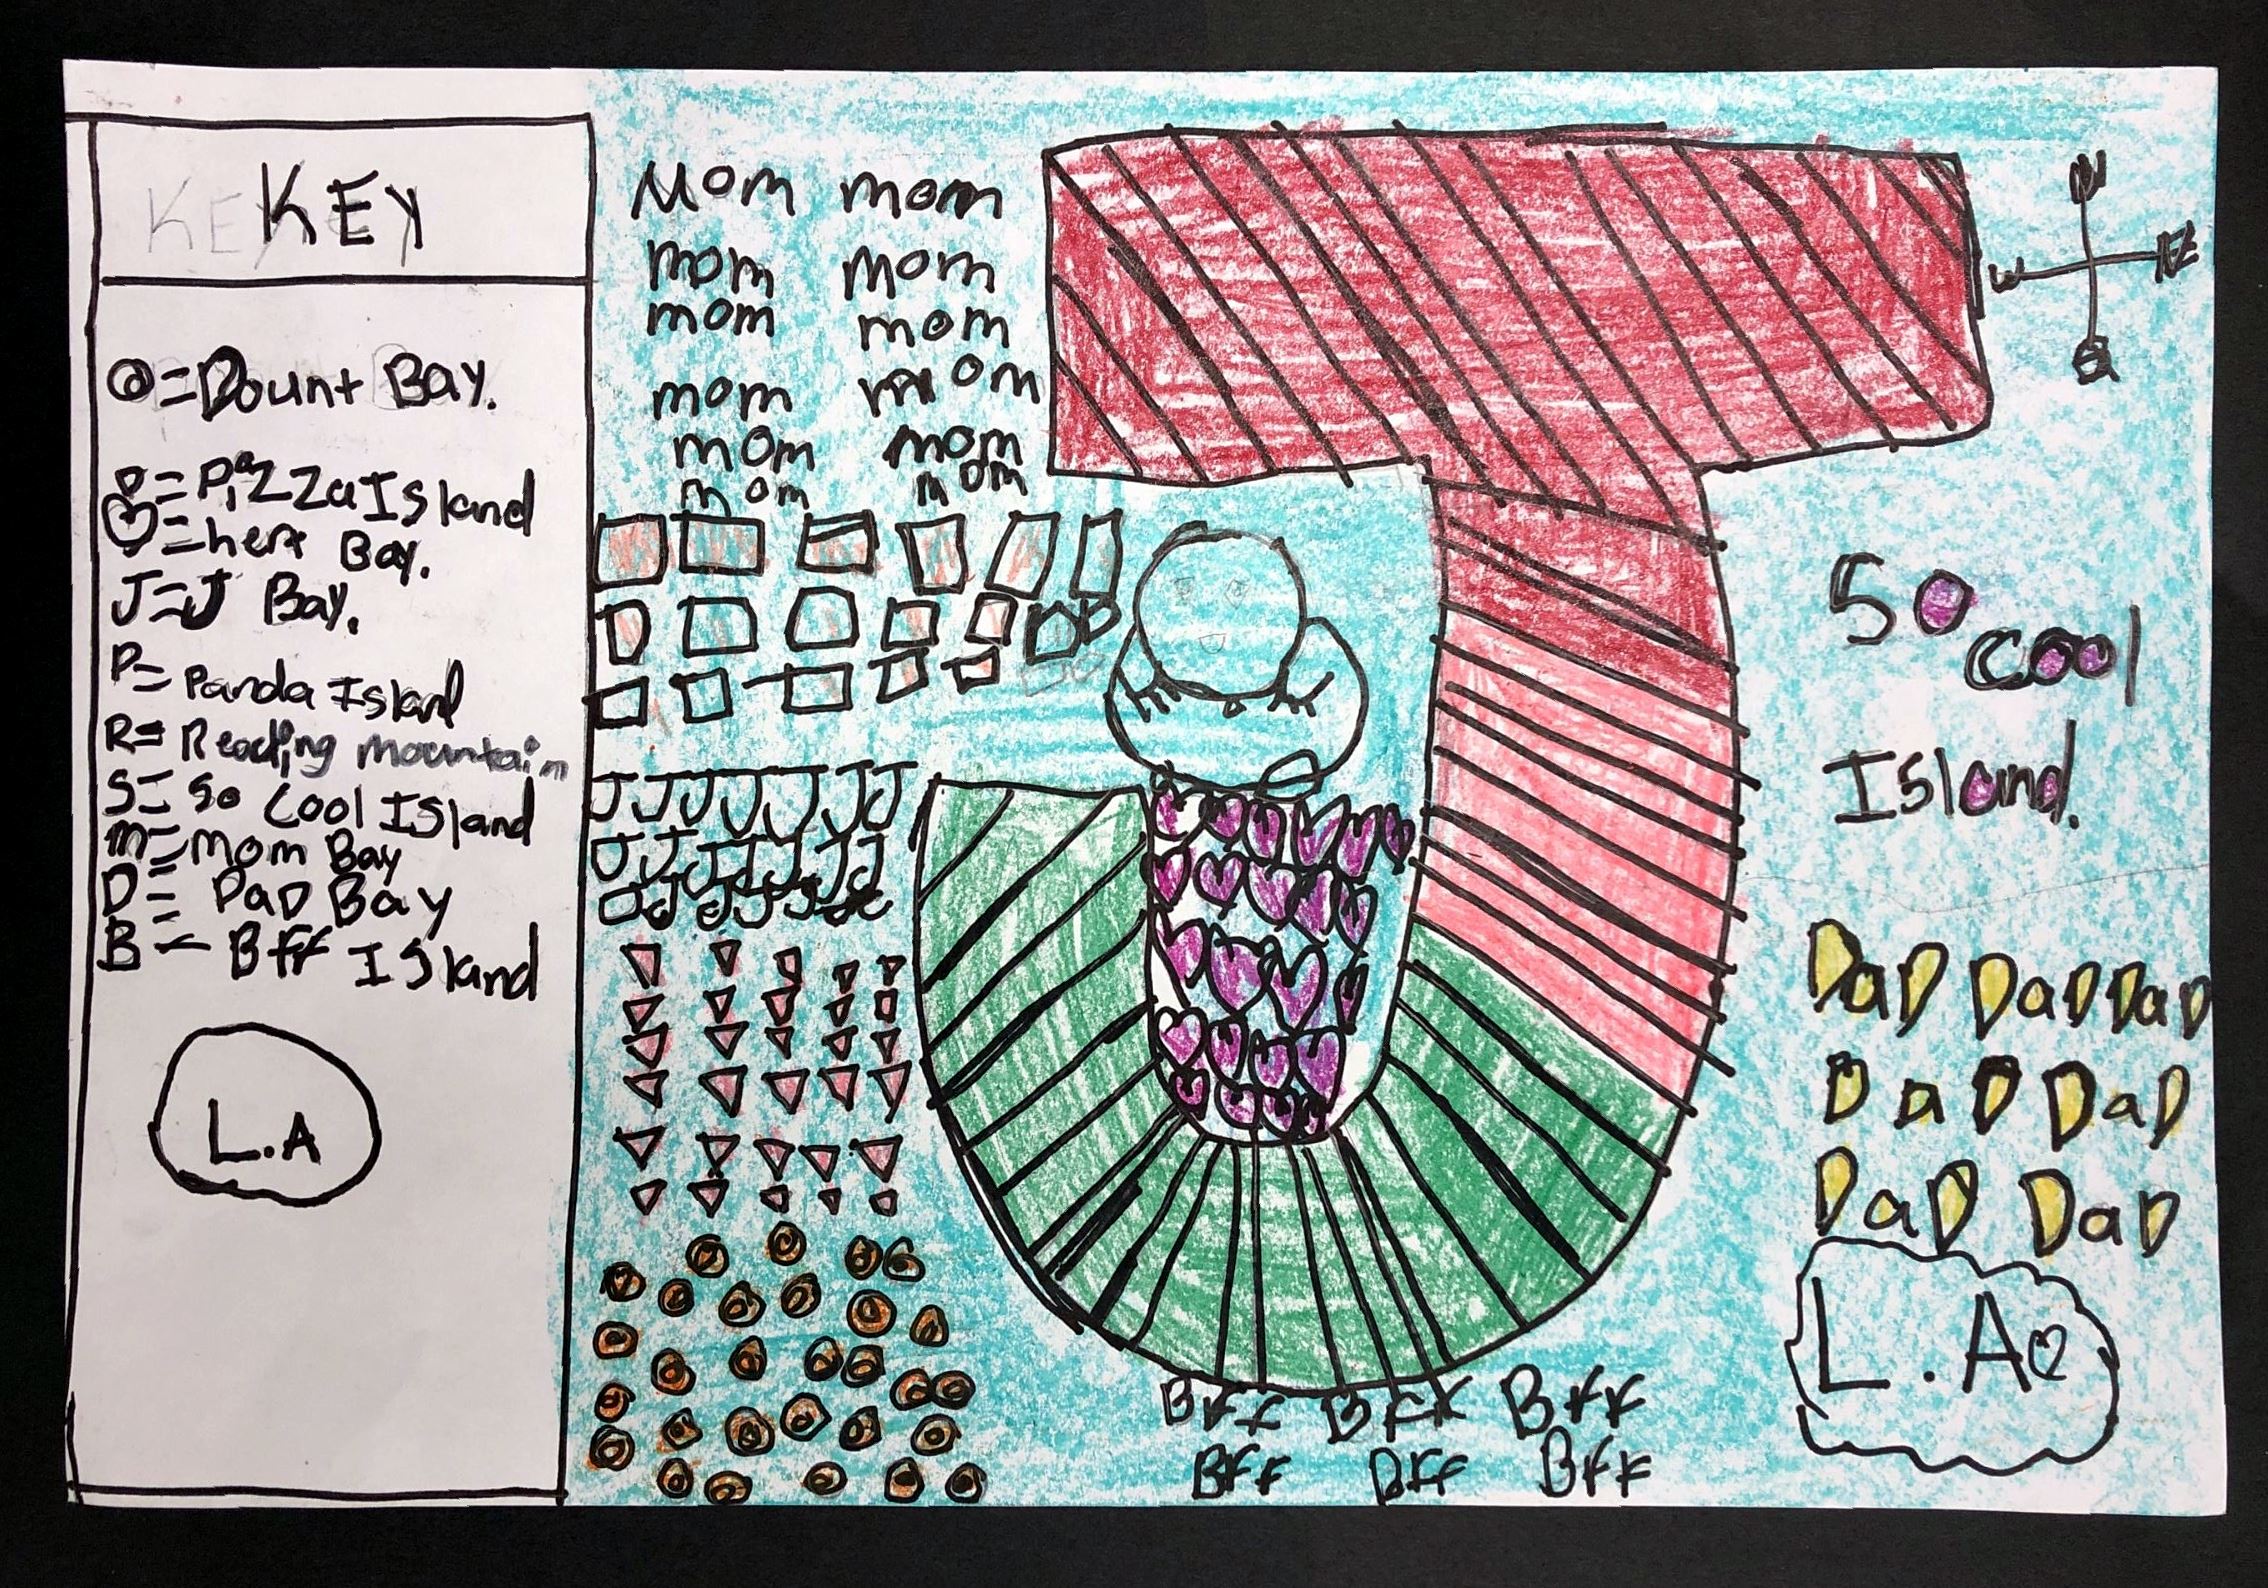 KEY
=Dount Bay.
P=Pizza Island
=hert Bay.
J=J Bay.
P= Panda Island
R= Reading mountain
S= So Cool Island
m= mom Bay
D= DaD Bay
B= Bff Island
L.A
Mom mom
mom mom
mom mom
mom mom
mom mom
mom mom
N
W E
S
So
cool
Island.
J J J J J J J
J J J J J J J
DaD DaD DaD
DaD DaD
DaD DaD
L.A
Bff Bff Bff
Bff Bff Bff